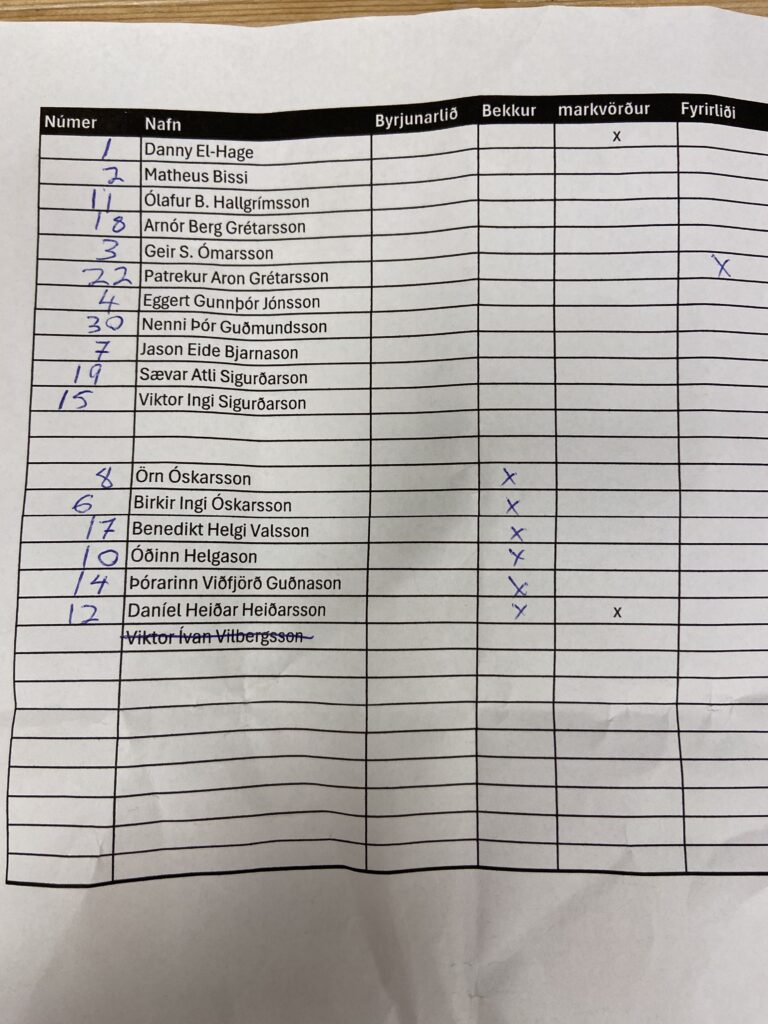 Númer Nafn Byrjunarlið Bekkur markvörður Fyrirliði
1 Danny El-Hage x
2 Matheus Bissi
11 Ólafur B. Hallgrímsson
18 Arnór Berg Grétarsson
3 Geir S. Ómarsson
22 Patrekur Aron Grétarsson X
4 Eggert Gunnþór Jónsson
30 Nenni Þór Guðmundsson
7 Jason Eide Bjarnason
19 Sævar Atli Sigurðarson
15 Viktor Ingi Sigurðarson
8 Örn Óskarsson X
6 Birkir Ingi Óskarsson X
17 Benedikt Helgi Valsson X
10 Óðinn Helgason X
14 Þórarinn Viðfjörð Guðnason X
12 Daníel Heiðar Heiðarsson X x
Viktor Ívan Vilbergsson